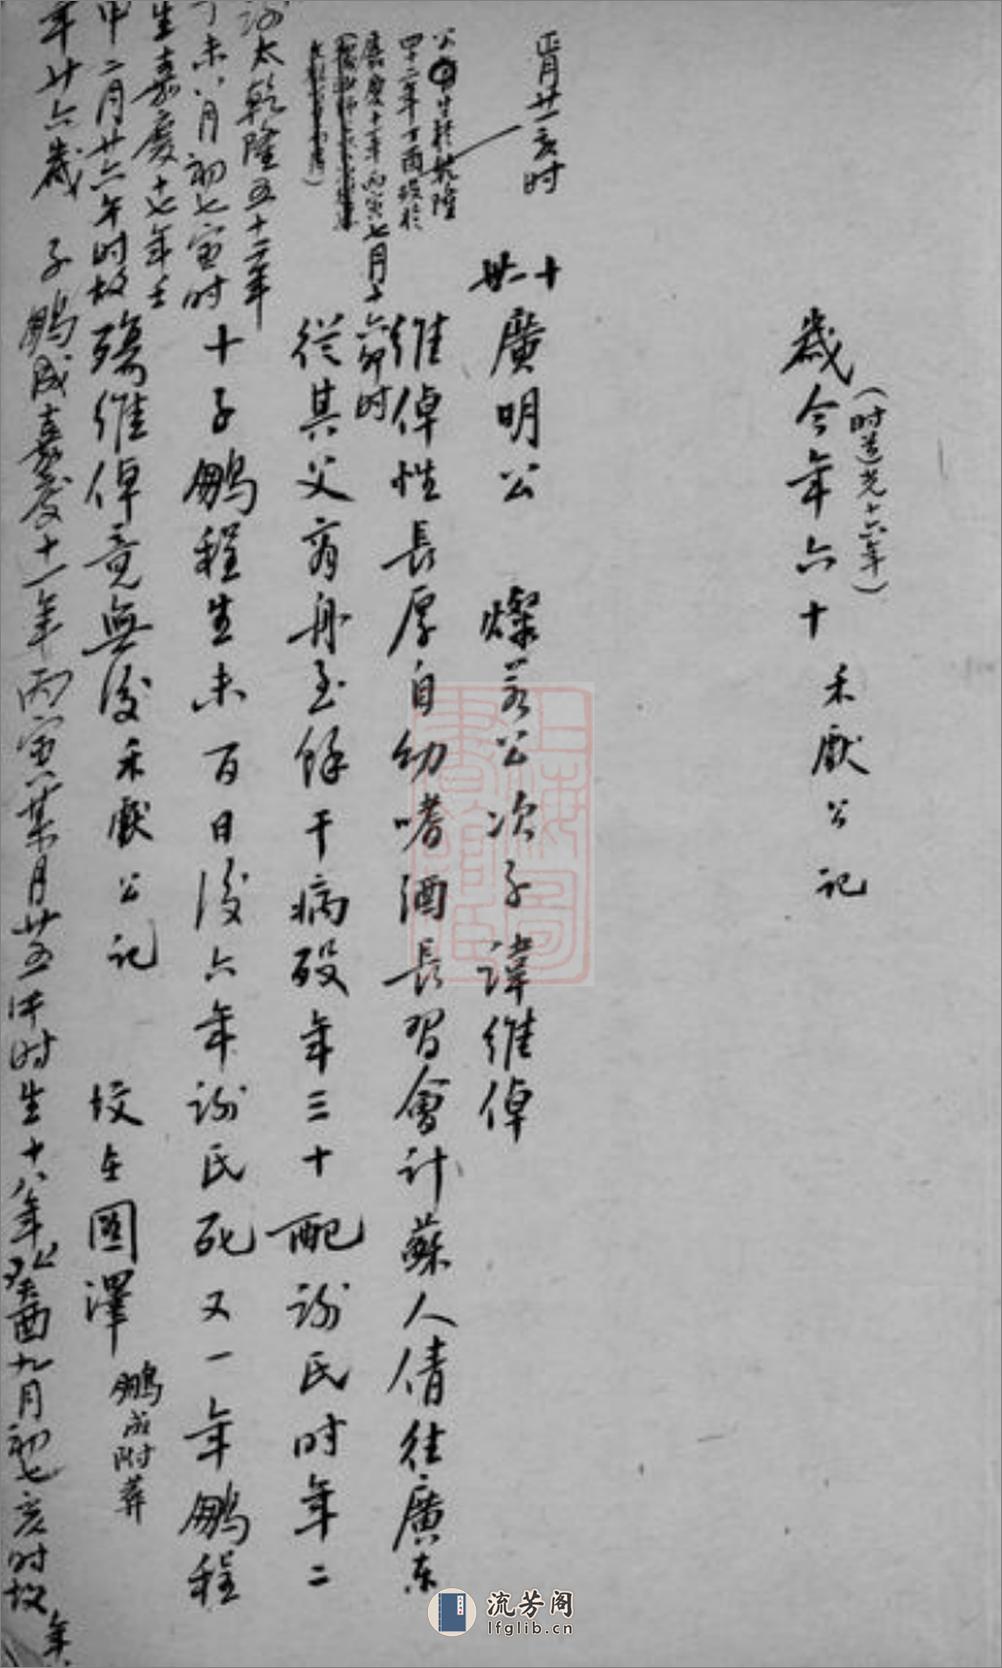 歲今年六十 禾獻公記
(时道光十六年)
十一世廣明公 燦若公次子諱維倬
正月廿一亥时
公生於乾隆
四十二年丁酉歿於
嘉慶十一年丙寅七月
六卯时
維倬性長厚自幼嗜酒長習會計蘇人倩往廣东
從其父商舟至餘干病歿年三十配謝氏时年二
十子鵬程生未百日後六年謝氏死又一年鵬程
殤維倬竟無後禾獻公記 墳在國澤
鵬成附葬
太乾隆五十二年
丁未八月初七寅时
生嘉慶十七年壬
申二月廿六午时故
年廿六歲 子鵬成嘉慶十一年丙寅某月廿五 时生十八年癸酉九月初七亥时故
流芳阁
lfglib.cn